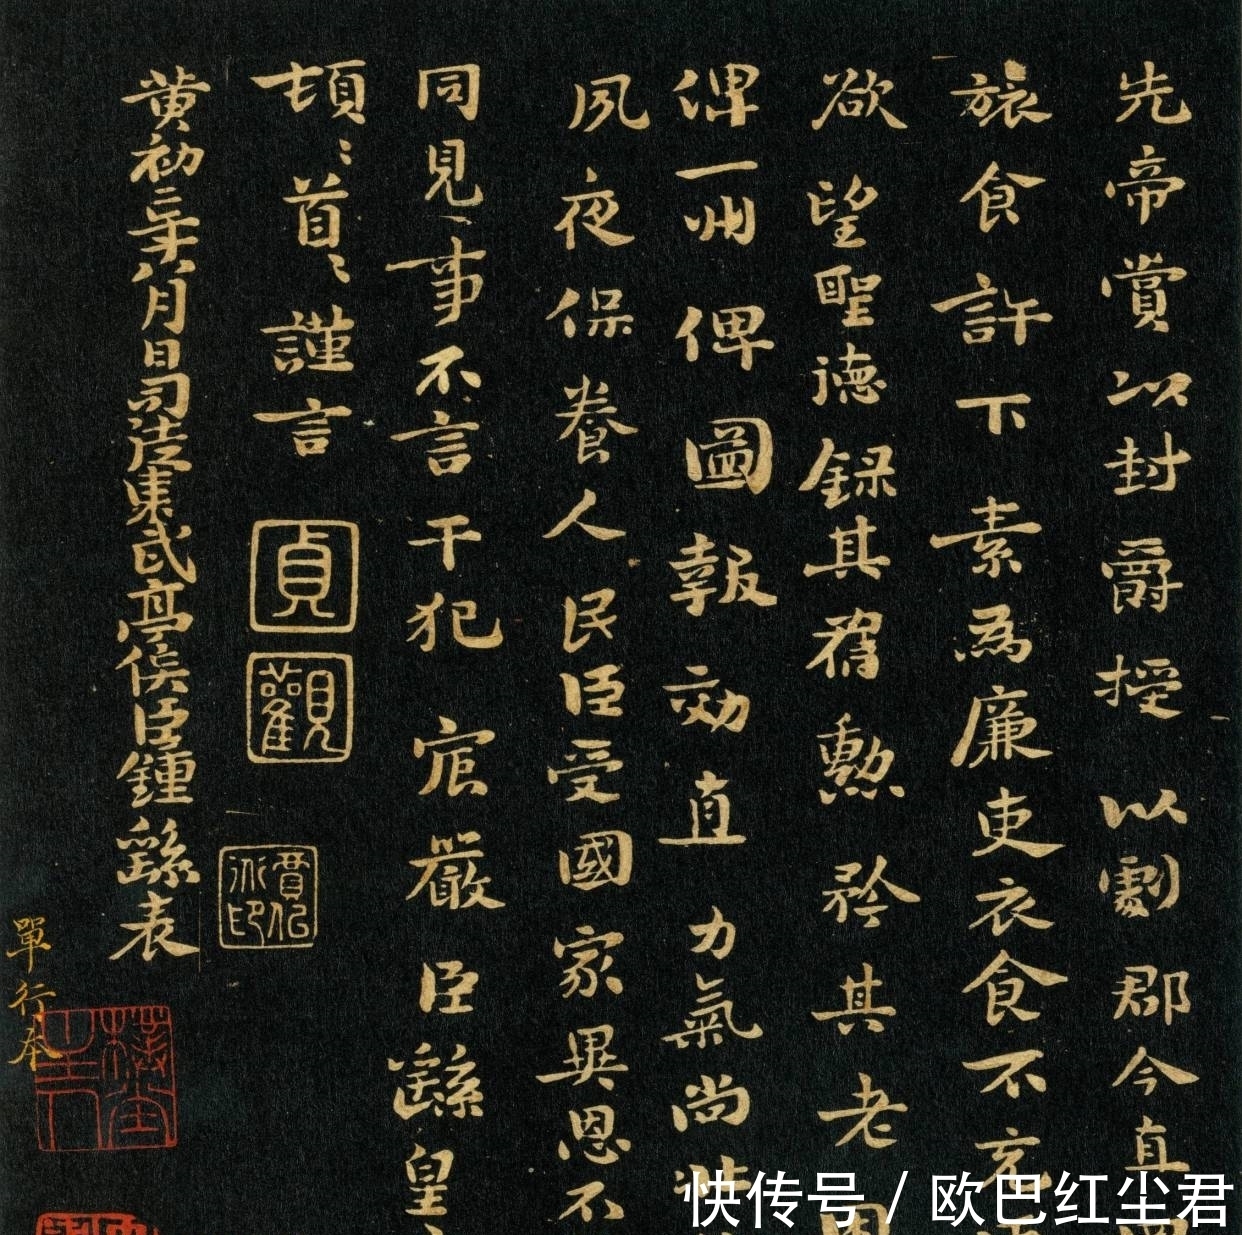 先帝賞以封爵授以劇郡今直
旅食許下素為廉吏衣食不充
欲望聖德録其舊勲矜其老
俾一州俾圖報効直力氣尚壯
夙夜保養人民臣受國家異恩不
同見事不言干犯宸嚴臣繇皇
頓〻首〻謹言
黄初二年八月日司徒東武亭侯臣鍾繇表
貞觀
單行本
快传号 / 欧巴红尘君